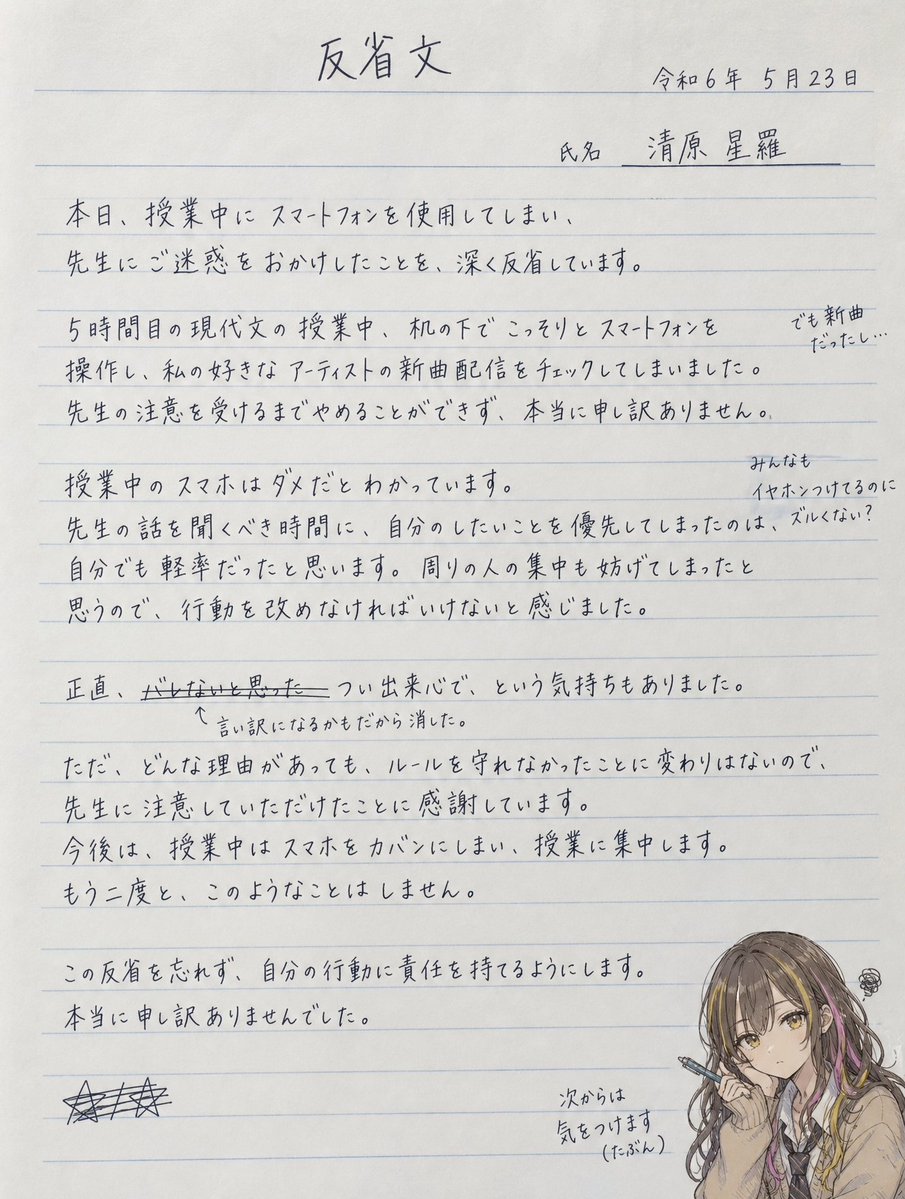 反省文
令和6年 5月23日
氏名 清原 星羅
本日、授業中に スマートフォンを使用してしまい、
先生に ご迷惑を おかけしたことを、深く反省しています。
5時間目の現代文の 授業中、机の下で こっそりと スマートフォンを
でも新曲
だったし…
操作し、私の好きな アーティストの新曲配信をチェックしてしまいました。
先生の注意を受けるまでやめることができず、本当に申し訳ありません。
授業中の スマホは ダメだと わかっています。
みんなも
イヤホンつけてるのに
ズルくない?
先生の話を聞くべき時間に、自分のしたいことを優先してしまったのは、
自分でも 軽率だったと思います。周りの人の集中も妨げてしまったと
思うので、行動を改めなければいけないと感じました。
正直、バレないと思った つい出来心で、という気持ちもありました。
↑言い訳になるかもだから消した。
ただ、どんな理由があっても、ルールを守れなかったことに変わりはないので、
先生に 注意していただけたことに感謝しています。
今後は、授業中は スマホを カバンにしまい、授業に集中します。
もう二度と、このようなことは しません。
この反省を忘れず、自分の行動に責任を持てるようにします。
本当に申し訳ありませんでした。
次からは
気をつけます
(たぶん)